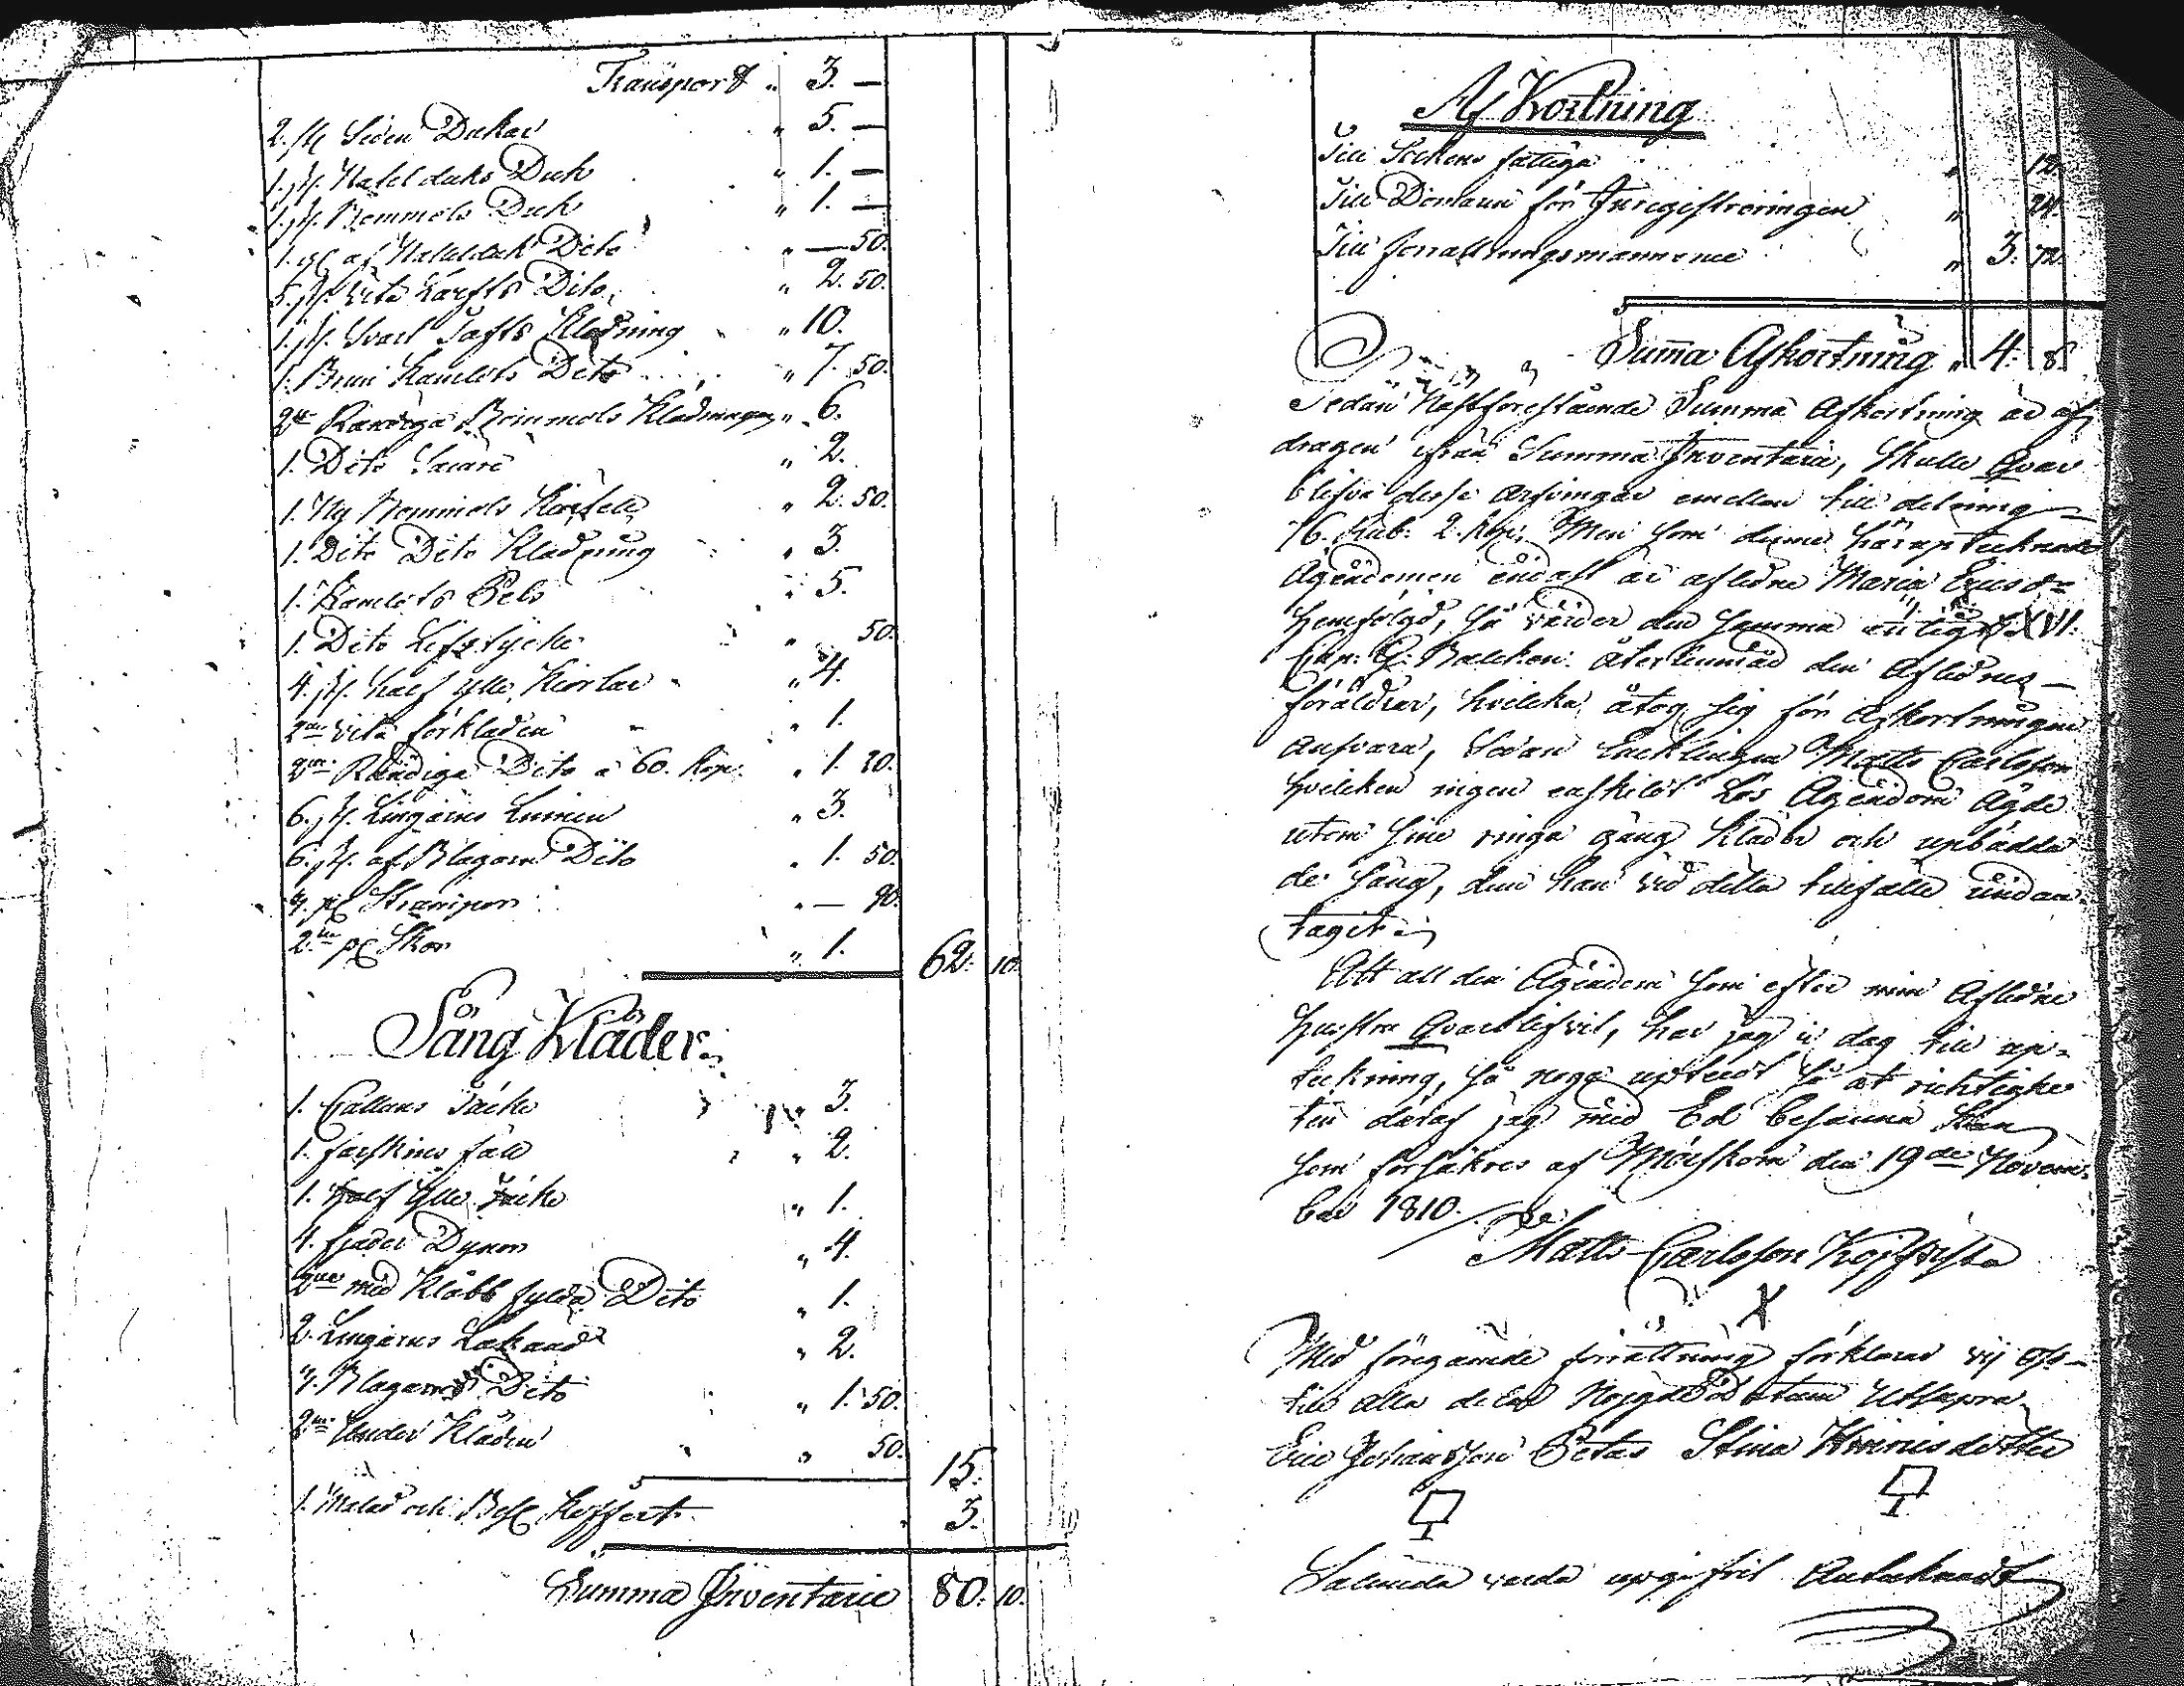 Transport " 3. —
2. st. Siden Dukar " 5. —
1. st. Natelduks Duk " 1. —
1. st. Bommols Duk " 1. —
1. st. af Natelduk Dito " — 50.
5. st. vita Lärfts Dito " 2. 50.
1. st. Svart Tafts Kladning " 10.
1. Brun Kamlots Dito " 7. 50.
2ne Randiga Bommols Kladningar " 6.
1. Dito " 2.
1. Ny Bommols " 2. 50.
1. Dito Dito Kladning " 3.
1. Kamlots Pels " 5.
1. Dito Lifstycke " 50.
4. st. half ylle Kiortlar " 4.
2ne vita förkladen " 1.
2ne Randiga Dito a 60. kop. " 1. 20.
6. st. Lingarns " 3.
6. st. af Blagarns Dito " 1. 50.
4. p Strumpor " — 90.
2ne p Skor " 1.
62. 10.
Säng Kläder.
1. Cattuns Täcke " 3.
1. fårskins fäll " 2.
1. half ylle Täcke " 1.
4. fjäder Dynor " 4.
2ne med Klåbb fylda Dito " 1.
2. Lingarns Lakand " 2.
4. Blagarns Dito " 1. 50.
2ne Under Kläden " 50.
15.
1. Malad och Besl Koffert 3.
Summa Inventarie 80. 10.
Af Kortning
Till Sockens fattiga " 12.
Till Domaren för Inregistreringen " 24.
Till forrattningsmannerne " 3. 72.
Summa Afkortning " 4. 8.
Sedan Nästforestående Summa Afkortning är af
dragen ifrån Summa Inventarie, skulle Qvar
blifva desse arfvingar emellan till delning
76. Rub. 2. kop. Men som denne här aptecknade
Agendomen endast är aflidne Maria Ericsdr
hemfolgd, så varder den samma enligt XVI.
Cap: G: Balcken återlemnad den Aflidnes
föräldrar, hvilcka åtog sig för Afkortningen
ansvara, sedan Encklingen Matts Carlsson
hvilcken ingen enskildt Lös Agendom Ägde
utom sine ringa gång Kläder och upbädda
de säng, den han vid detta tillfälle undan
tagit.
Att all den Agendom som efter min Aflidne
hustru Qvarblifvit, har jag i dag till up-
teckning, så noga uptedt så at richtighe
ten däraf jag med Ed besanna kan
som försäkras af Mörskom den 19de Novem-
ber 1810.
Matts Carlsson
X
Med föregående förrättning förklarar vij oss
till alla delar Nögde Datum Utsupra.
Eric Johansson Petas Stina Hinricsdotter
Salunda varda upgifvit